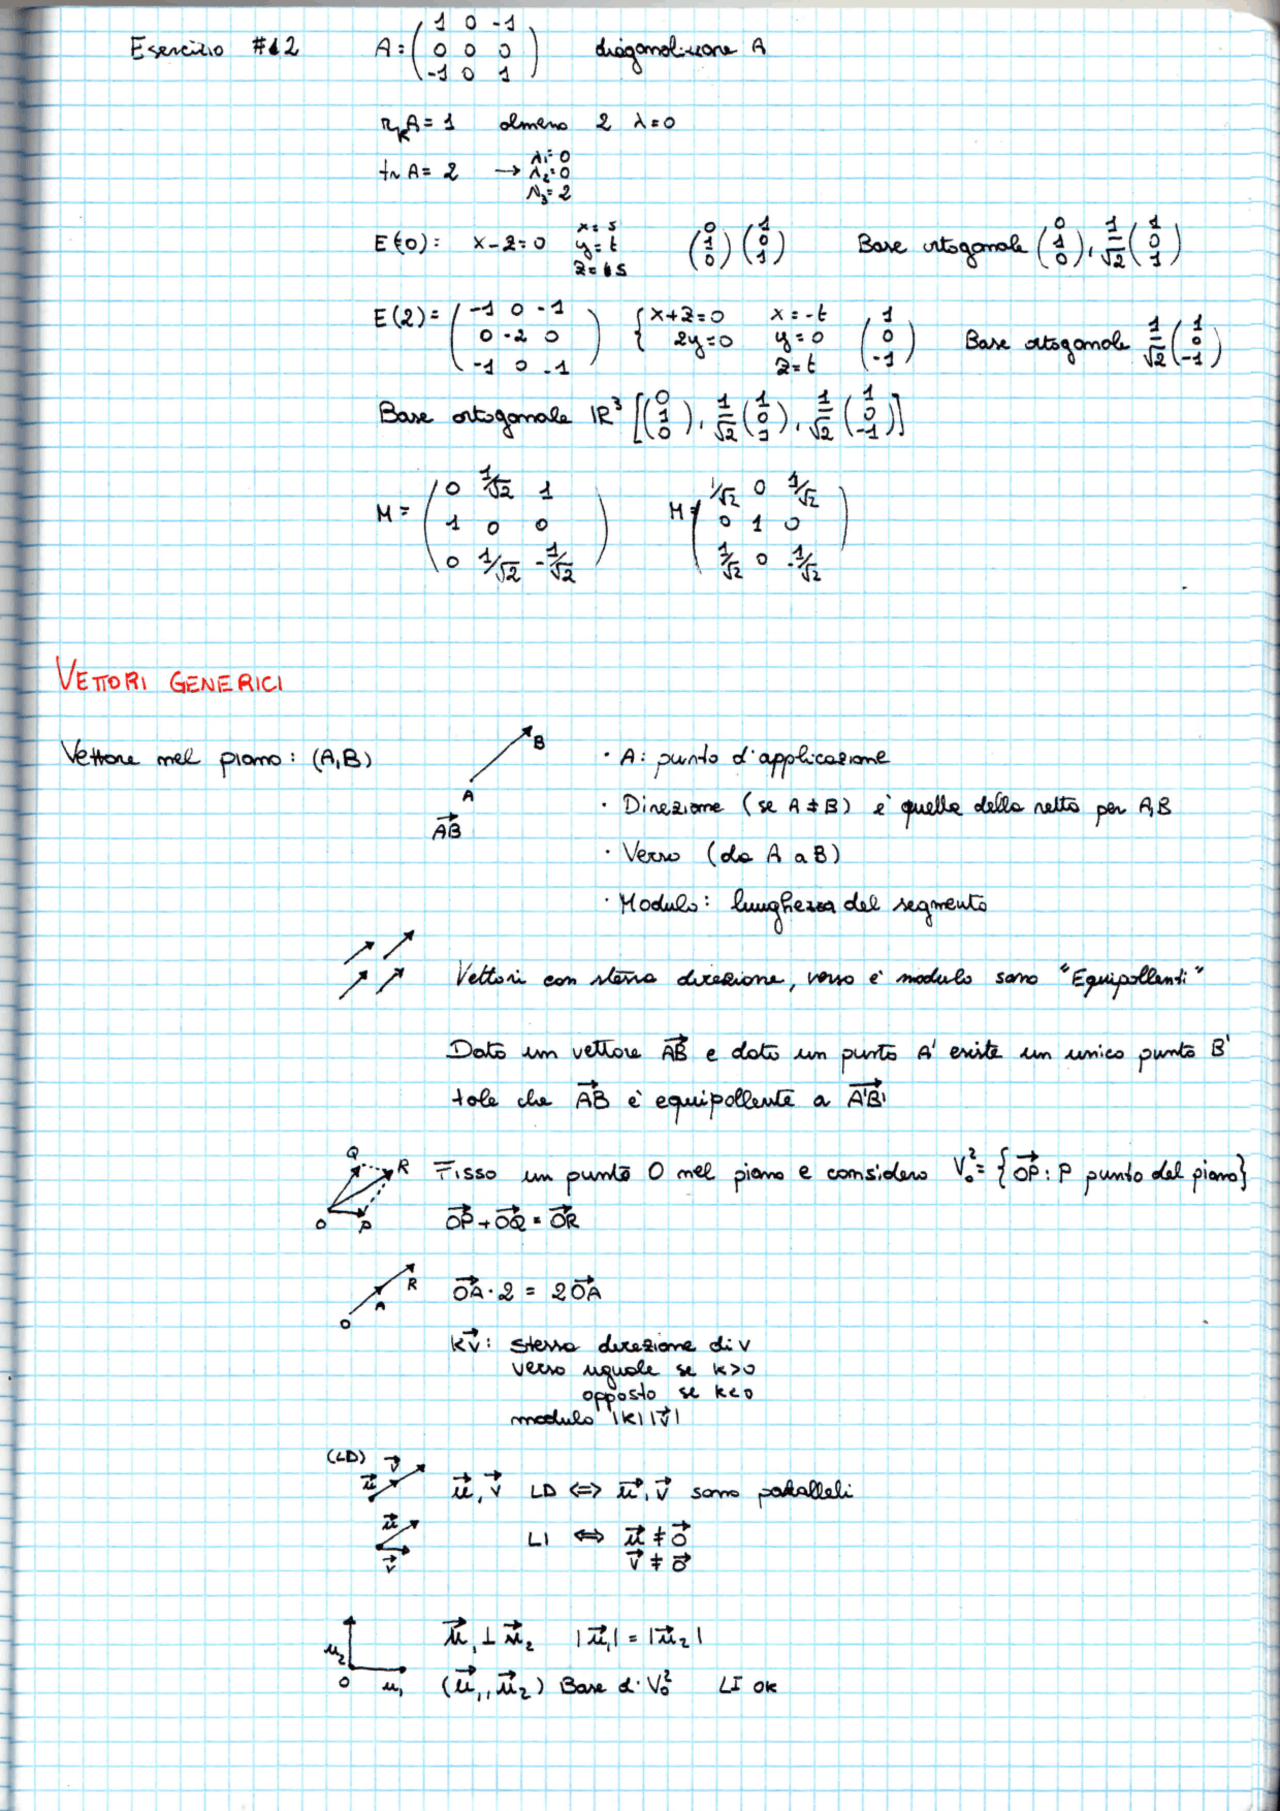 Esercizio #12 A = ( 1 0 -1 / 0 0 0 / -1 0 1 ) diagonalizzare A
rkA = 1 almeno 2 λ=0
tr A = 2 → λ1=0 λ2=0 λ3=2
E(0): x-z=0 x=s y=t z=s (0 1 0) (1 0 1) Base ortogonale (0 1 0), 1/√2 (1 0 1)
E(2) = ( -1 0 -1 / 0 -2 0 / -1 0 -1 ) { x+z=0 2y=0 x=-t y=0 z=t (1 0 -1) Base ortogonale 1/√2 (1 0 -1)
Base ortogonale IR³ [(0 1 0), 1/√2 (1 0 1), 1/√2 (1 0 -1)]
M = ( 0 1/√2 1 / 1 0 0 / 0 1/√2 -1/√2 ) M = ( 1/√2 0 1/√2 / 0 1 0 / 1/√2 0 -1/√2 )
VETTORI GENERICI
Vettore nel piano: (A,B) A B AB
· A: punto d'applicazione
· Direzione (se A ≠ B) è quella della retta per A,B
· Verso (da A a B)
· Modulo: lunghezza del segmento
Vettori con stessa direzione, verso e modulo sono "Equipollenti"
Dato un vettore AB e dato un punto A' esiste un unico punto B'
tale che AB è equipollente a A'B'
O P Q R Fisso un punto O nel piano e considero V₀² = {OP : P punto del piano}
OP + OQ = OR
O A R OA · 2 = 2OA
kv: stessa direzione di v
verso uguale se k>0
opposto se k<0
modulo |k||v|
(LD) u v u, v LD ⟺ u, v sono paralleli
u v LI ⟺ u ≠ 0
v ≠ 0
u₂ O u₁ u₁ ⊥ u₂ |u₁| = |u₂|
(u₁, u₂) Base di V₀² LI ok